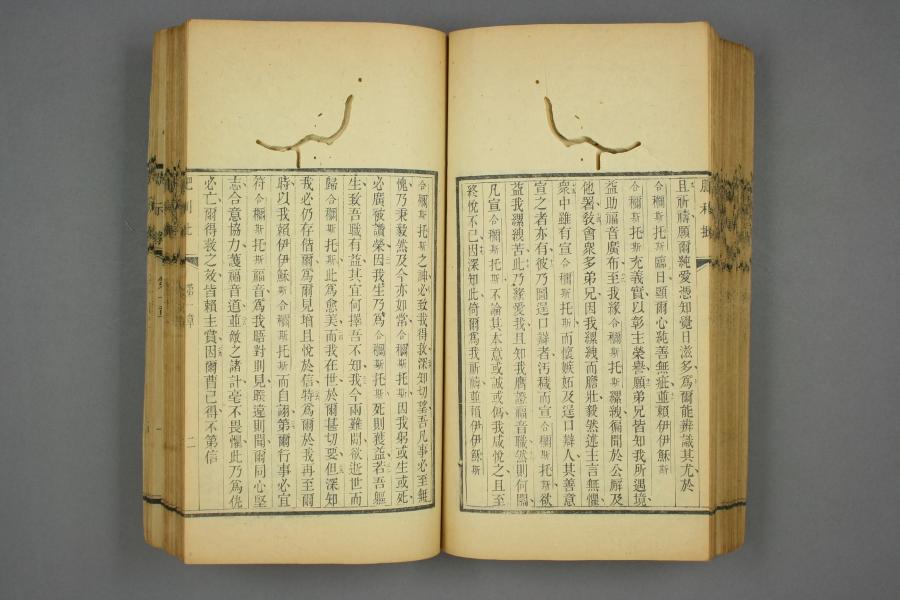 且祈禱願爾純愛憑知覺日滋多為爾能辨識其尤於
合穪斯托斯臨日顯爾心純善無疵並賴伊伊穌斯
合穪斯托斯充義實以彰主榮譽願弟兄皆知我所遇境
益助福音廣布至我緣合穪斯托斯縲絏徧聞於公廨及
他署敎會眾多弟兄因我縲絏而膽壯毅然述主言無懼
衆中雖有宣合穪斯托斯而懷嫉妬及逞口辯人其善意
宣之者亦有彼乃圖逞口辯者汚穢而宣合穪斯托斯欲
益我縲絏苦此乃緣愛我且知我膺證福音職然則何關
凡宣合穪斯托斯不論其本意或誠或僞我咸悅之且至
終悅不已因深知此倚爾爲我祈禱並賴伊伊穌斯
合穪斯托斯之神必致我得救深知切望吾凡事必至無
愧乃秉毅然及今亦如常合穪斯托斯因我躬或生或死
必廣被讚榮因我生乃爲合穪斯托斯死則獲益若吾軀
生致吾職有益其宜何擇吾不知我今兩難間欲逝世而
歸合穪斯托斯此爲愈美而我在世於爾甚切要但深知
我必仍存偕爾爲爾見增且悅於信特爲爾於我再至爾
時以我賴伊伊穌斯合穪斯托斯而自詡第爾行事必宜
符合穪斯托斯福音爲我晤對則見睽違則聞爾同心堅
志合意協力蒦福音道並敵之諸計毫不畏懼此乃爲伊
必亡爾得救之效皆賴主賞因爾曹已得不第信
第一章
二